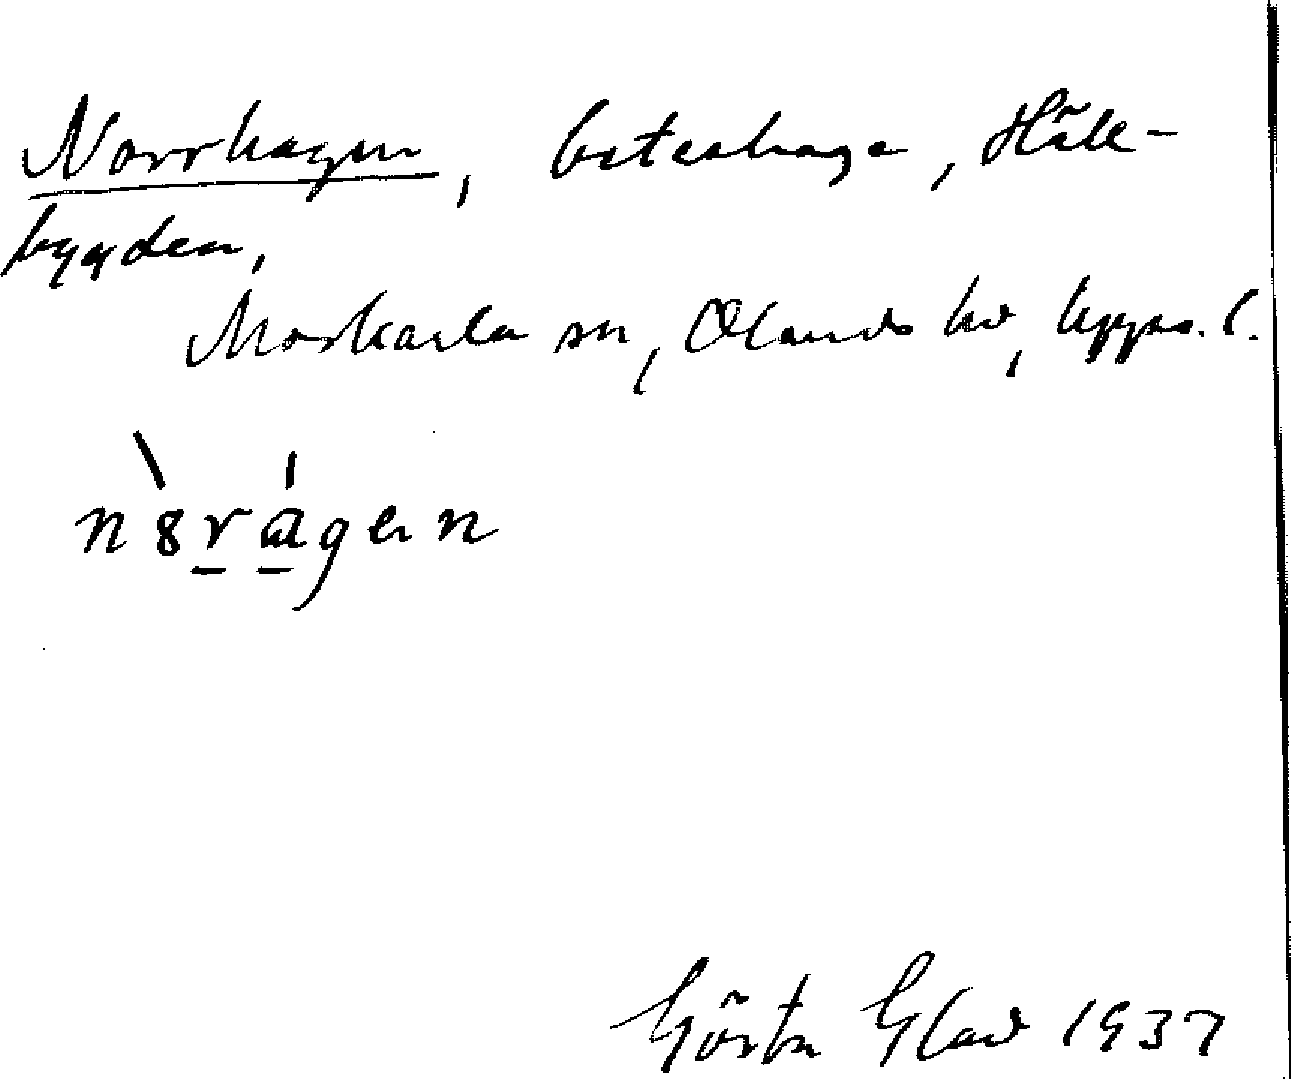 Norrhagen, beteshage, Häll-
bygden,
Morkarla sn, Olands hd, Upps. l.
n8rágen
Gösta Glad 1937